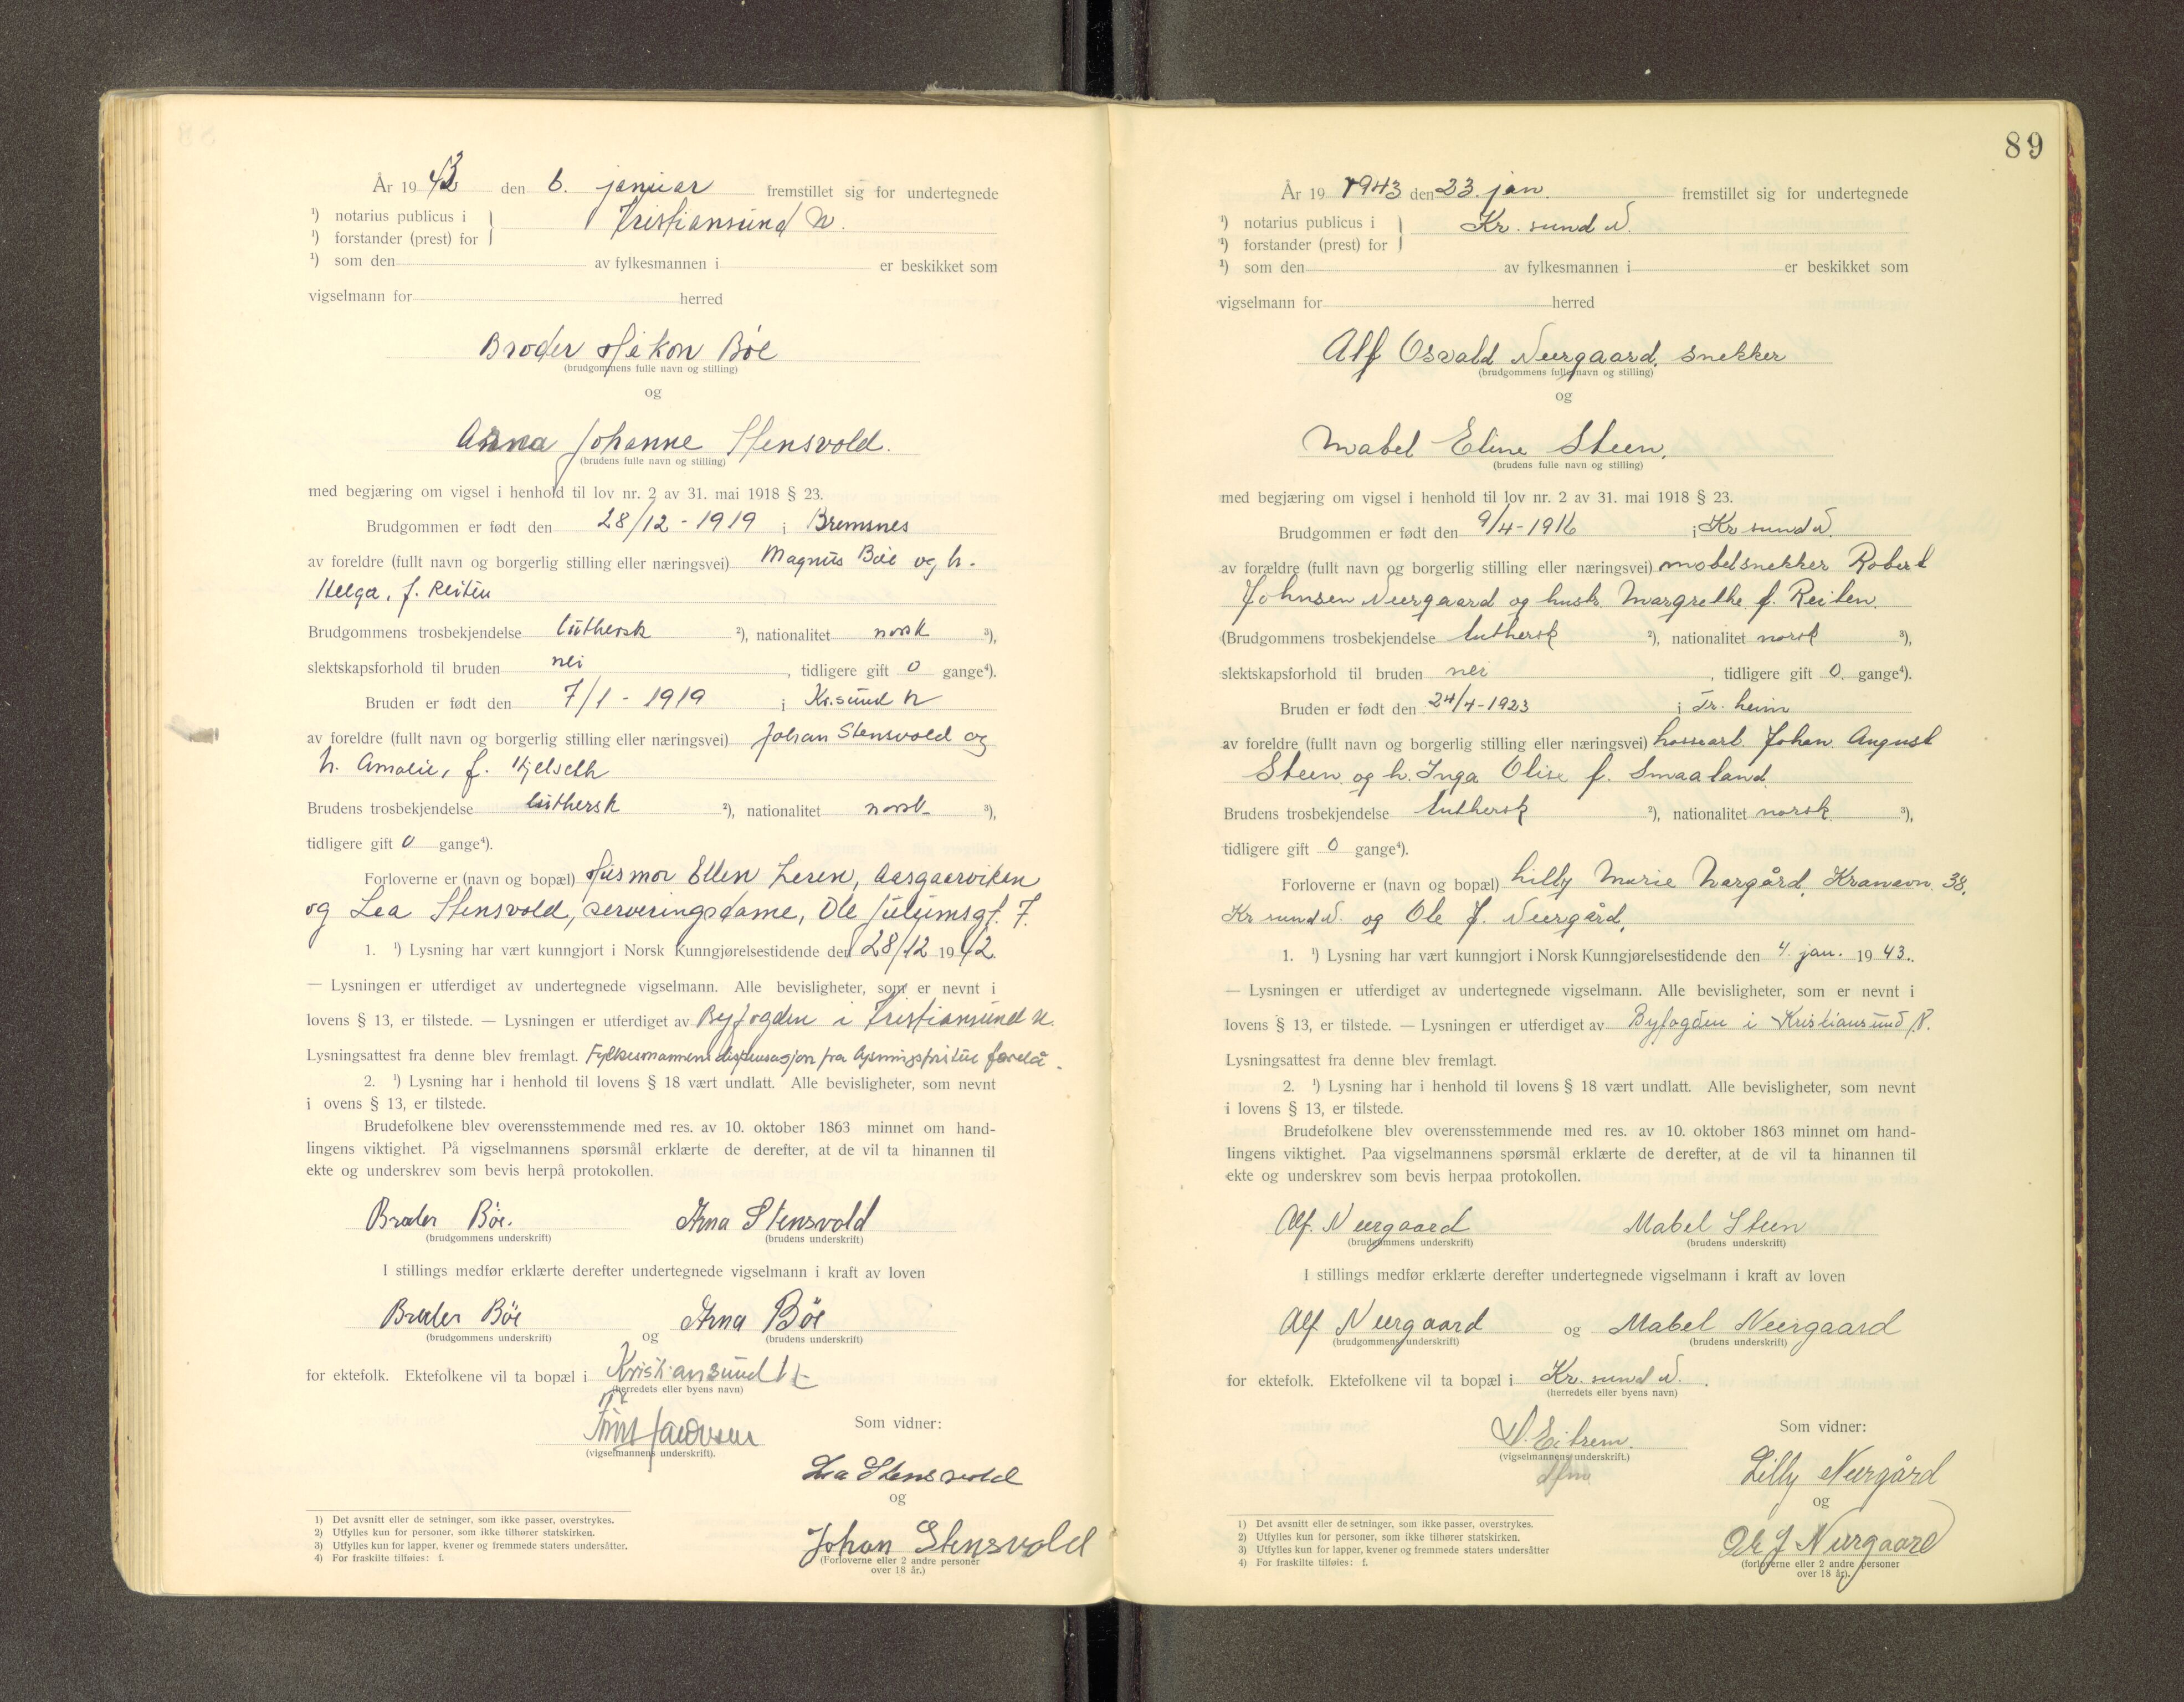 År 1943 den 6. januar fremstillet sig for undertegnede
¹) notarius publicus i } Kristiansund N.
¹) forstander (prest) for
¹) som den av fylkesmannen i er beskikket som
vigselmann for herred
Broder Håkon Böe
(brudgommens fulle navn og stilling)
og
Anna Johanne Stensvold.
(brudens fulle navn og stilling)
med begjæring om vigsel i henhold til lov nr. 2 av 31. mai 1918 § 23.
Brudgommen er født den 28/12 - 1919 i Bremsnes
av foreldre (fullt navn og borgerlig stilling eller næringsvei) Magnus Böe og h.
Helga, f. Reiten
Brudgommens trosbekjendelse luthersk ²), nationalitet norsk ³),
slektskapsforhold til bruden nei, tidligere gift 0 gange⁴).
Bruden er født den 7/1 - 1919 i Kr.sund N
av foreldre (fullt navn og borgerlig stilling eller næringsvei) Johan Stensvold og
h. Amalie, f. Hjelseth
Brudens trosbekjendelse luthersk ²), nationalitet norsk ³),
tidligere gift 0 gange⁴).
Forloverne er (navn og bopæl) Husmor Ellen Leren, Aasgaarviken
og Lea Stensvold, serveringsdame, Ole Juliumsgt. 7.
1. ¹) Lysning har vært kunngjort i Norsk Kunngjørelsestidende den 28/12 1942.
— Lysningen er utferdiget av undertegnede vigselmann. Alle bevisligheter, som er nevnt i
lovens § 13, er tilstede. — Lysningen er utferdiget av Byfogden i Kristiansund N.
Lysningsattest fra denne blev fremlagt. Fylkesmannens dispensasjon fra lysningsfristen forelå.
2. ¹) Lysning har i henhold til lovens § 18 vært undlatt. Alle bevisligheter, som nevnt
i ovens § 13, er tilstede.
Brudefolkene blev overensstemmende med res. av 10. oktober 1863 minnet om hand-
lingens viktighet. På vigselmannens spørsmål erklærte de derefter, at de vil ta hinannen til
ekte og underskrev som bevis herpå protokollen.
Broder Böe. Anna Stensvold
(brudgommens underskrift) (brudens underskrift)
I stillings medfør erklærte derefter undertegnede vigselmann i kraft av loven
Broder Böe og Anna Böe
(brudgommens underskrift) (brudens underskrift)
for ektefolk. Ektefolkene vil ta bopæl i Kristiansund N
(herredets eller byens navn)
(vigselmannens underskrift).
Som vidner:
Lea Stensvold
og
Johan Stensvold
(Forloverne eller 2 andre personer
over 18 år.)
1) Det avsnitt eller de setninger, som ikke passer, overstrykes.
2) Utfylles kun for personer, som ikke tilhører statskirken.
3) Utfylles kun for lapper, kvener og fremmede staters undersåtter.
4) For fraskilte tilføies: f.
89
År 19 1943 den 23. jan. fremstillet sig for undertegnede
¹) notarius publicus i } Kr. sund N.
¹) forstander (prest) for
¹) som den av fylkesmannen i er beskikket som
vigselmann for herred
Alf Osvald Neergaard, snekker
(brudgommens fulle navn og stilling)
og
Mabel Eline Steen.
(brudens fulle navn og stilling)
med begjæring om vigsel i henhold til lov nr. 2 av 31. mai 1918 § 23.
Brudgommen er født den 9/4-1916 i Kr sund N.
av forældre (fullt navn og borgerlig stilling eller næringsvei) møbelsnekker Robert
Johnsen Neergaard og hustr. Margrethe f. Reiten.
(Brudgommens trosbekjendelse luthersk ²), nationalitet norsk ³),
slektskapsforhold til bruden nei, tidligere gift 0. gange⁴).
Bruden er født den 24/4-1923 i Tr. heim
av foreldre (fullt navn og borgerlig stilling eller næringsvei) Johan August
Steen og h. Inga Olise f. Smaaland.
Brudens trosbekjendelse luthersk ²), nationalitet norsk ³),
tidligere gift 0 gange⁴).
Forloverne er (navn og bopæl) Lilly Marie Nergård, Kranavn. 38,
Kr sund N. og Ole J. Neergård.
1. ¹) Lysning har vært kunngjort i Norsk Kunngjørelsestidende den 4. jan. 1943.
— Lysningen er utferdiget av undertegnede vigselmann. Alle bevisligheter, som er nevnt i
lovens § 13, er tilstede. — Lysningen er utferdiget av Byfogden i Kristiansund N.
Lysningsattest fra denne blev fremlagt.
2. ¹) Lysning har i henhold til lovens § 18 vært undlatt. Alle bevisligheter, som nevnt
i lovens § 13, er tilstede.
Brudefolkene blev overensstemmende med res. av 10. oktober 1863 minnet om hand-
lingens viktighet. Paa vigselmannens spørsmål erklærte de derefter, at de vil ta hinannen til
ekte og underskrev som bevis herpaa protokollen.
Alf. Neergaard Mabel Steen
(brudgommens underskrift) (brudens underskrift)
I stillings medfør erklærte derefter undertegnede vigselmann i kraft av loven
Alf Neergaard og Mabel Neergaard
(brudgommens underskrift) (brudens underskrift)
for ektefolk. Ektefolkene vil ta bopæl i Kr. sund N.
(herredets eller byens navn)
N. Eitrem.
(vigselmannens underskrift.)
Som vidner:
Lilly Neergård
og
Ole J Neergaard
(forloverne eller 2 andre personer
over 18 år).
1) Det avsnitt eller de setninger, som ikke passer, overstrykes.
2) Utfylles kun for personer, som ikke tilhører statskirken.
3) Utfylles kun for lapper, kvener og fremmede staters undersåtter
4) For fraskilte tilføies: f.